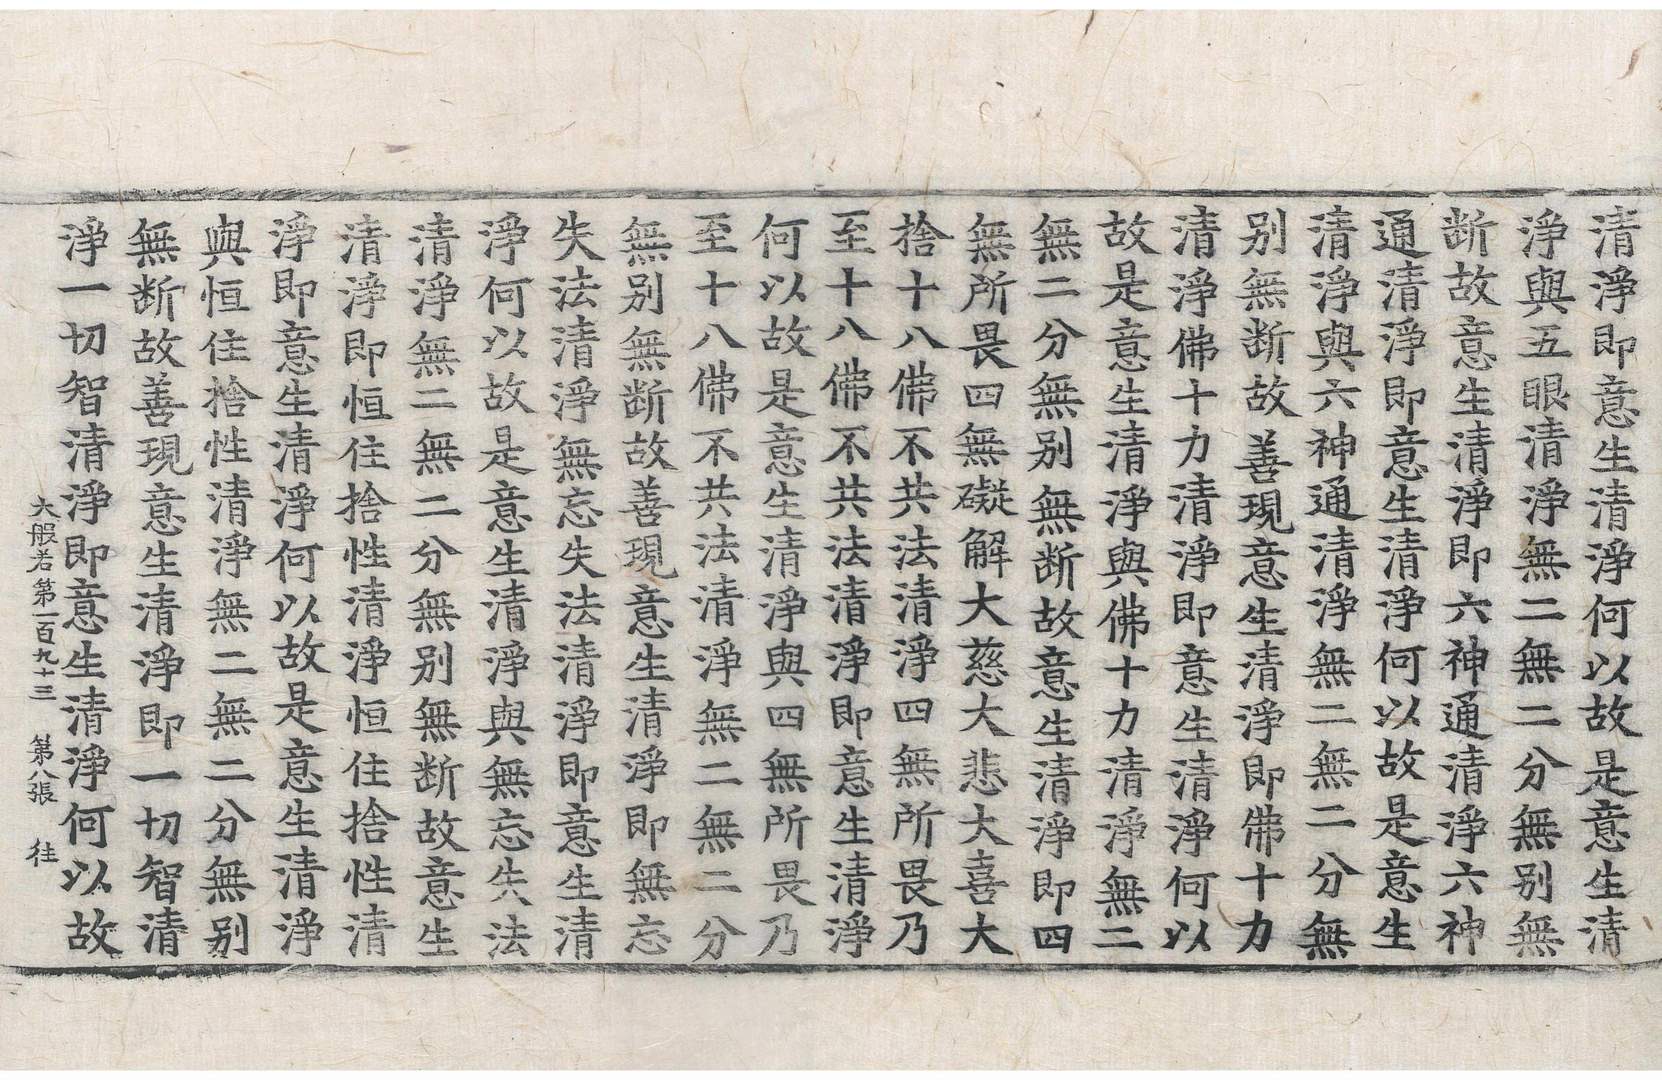 清淨即意生清淨何以故是意生清
淨與五眼清淨無二無二分無別無
断故意生清淨即六神通清淨六神
通清淨即意生清淨何以故是意生
清淨與六神通清淨無二無二分無
別無断故善現意生清淨即佛十力
清淨佛十力清淨即意生清淨何以
故是意生清淨與佛十力清淨無二
無二分無別無断故意生清淨即四
無所畏四無礙解大慈大悲大喜大
捨十八佛不共法清淨四無所畏乃
至十八佛不共法清淨即意生清淨
何以故是意生清淨與四無所畏乃
至十八佛不共法清淨無二無二分
無別無断故善現意生清淨即無忘
失法清淨無忘失法清淨即意生清
淨何以故是意生清淨與無忘失法
清淨無二無二分無別無断故意生
清淨即恒住捨性清淨恒住捨性清
淨即意生清淨何以故是意生清淨
與恒住捨性清淨無二無二分無別
無断故善現意生清淨即一切智清
淨一切智清淨即意生清淨何以故
大般若第一百九十三 第八張 往